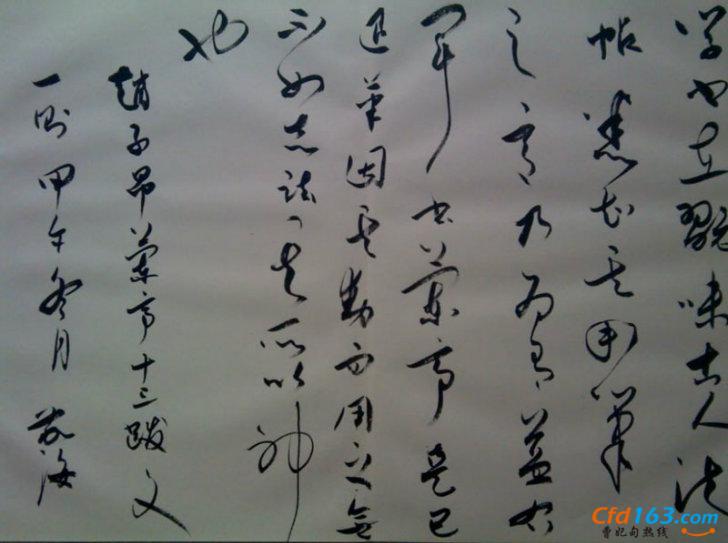 學書在翫味古人法
帖悉知其用筆
之意乃為有益右
軍書蘭亭是已
退筆因其勢而用之無
不如志茲其所以神
也
趙子昂蘭亭十三跋文
一則甲午冬月 海
Cfd163.com
曹妃甸热线